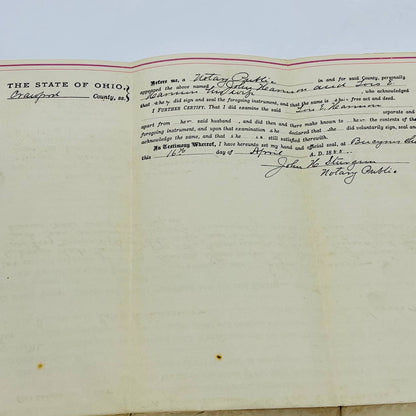 THE STATE OF OHIO,
Crawford County, ss.
Before me, a Notary Public in and for said County, personally
appeared the above named John Hannon and Lois E
Hannon his wife, who acknowledged
that they did sign and seal the foregoing instrument, and that the same is their free act and deed.
I FURTHER CERTIFY, That I did examine the said Lois E. Hannon separate and
apart from her said husband, and did then and there make known to her the contents of the
foregoing instrument, and upon that examination she declared that she did voluntarily sign, seal and
acknowledge the same, and that she is still satisfied therewith.
In Testimony Whereof, I have hereunto set my hand and official seal, at Bucyrus
this 16th day of April A. D. 18
John H
Notary Public